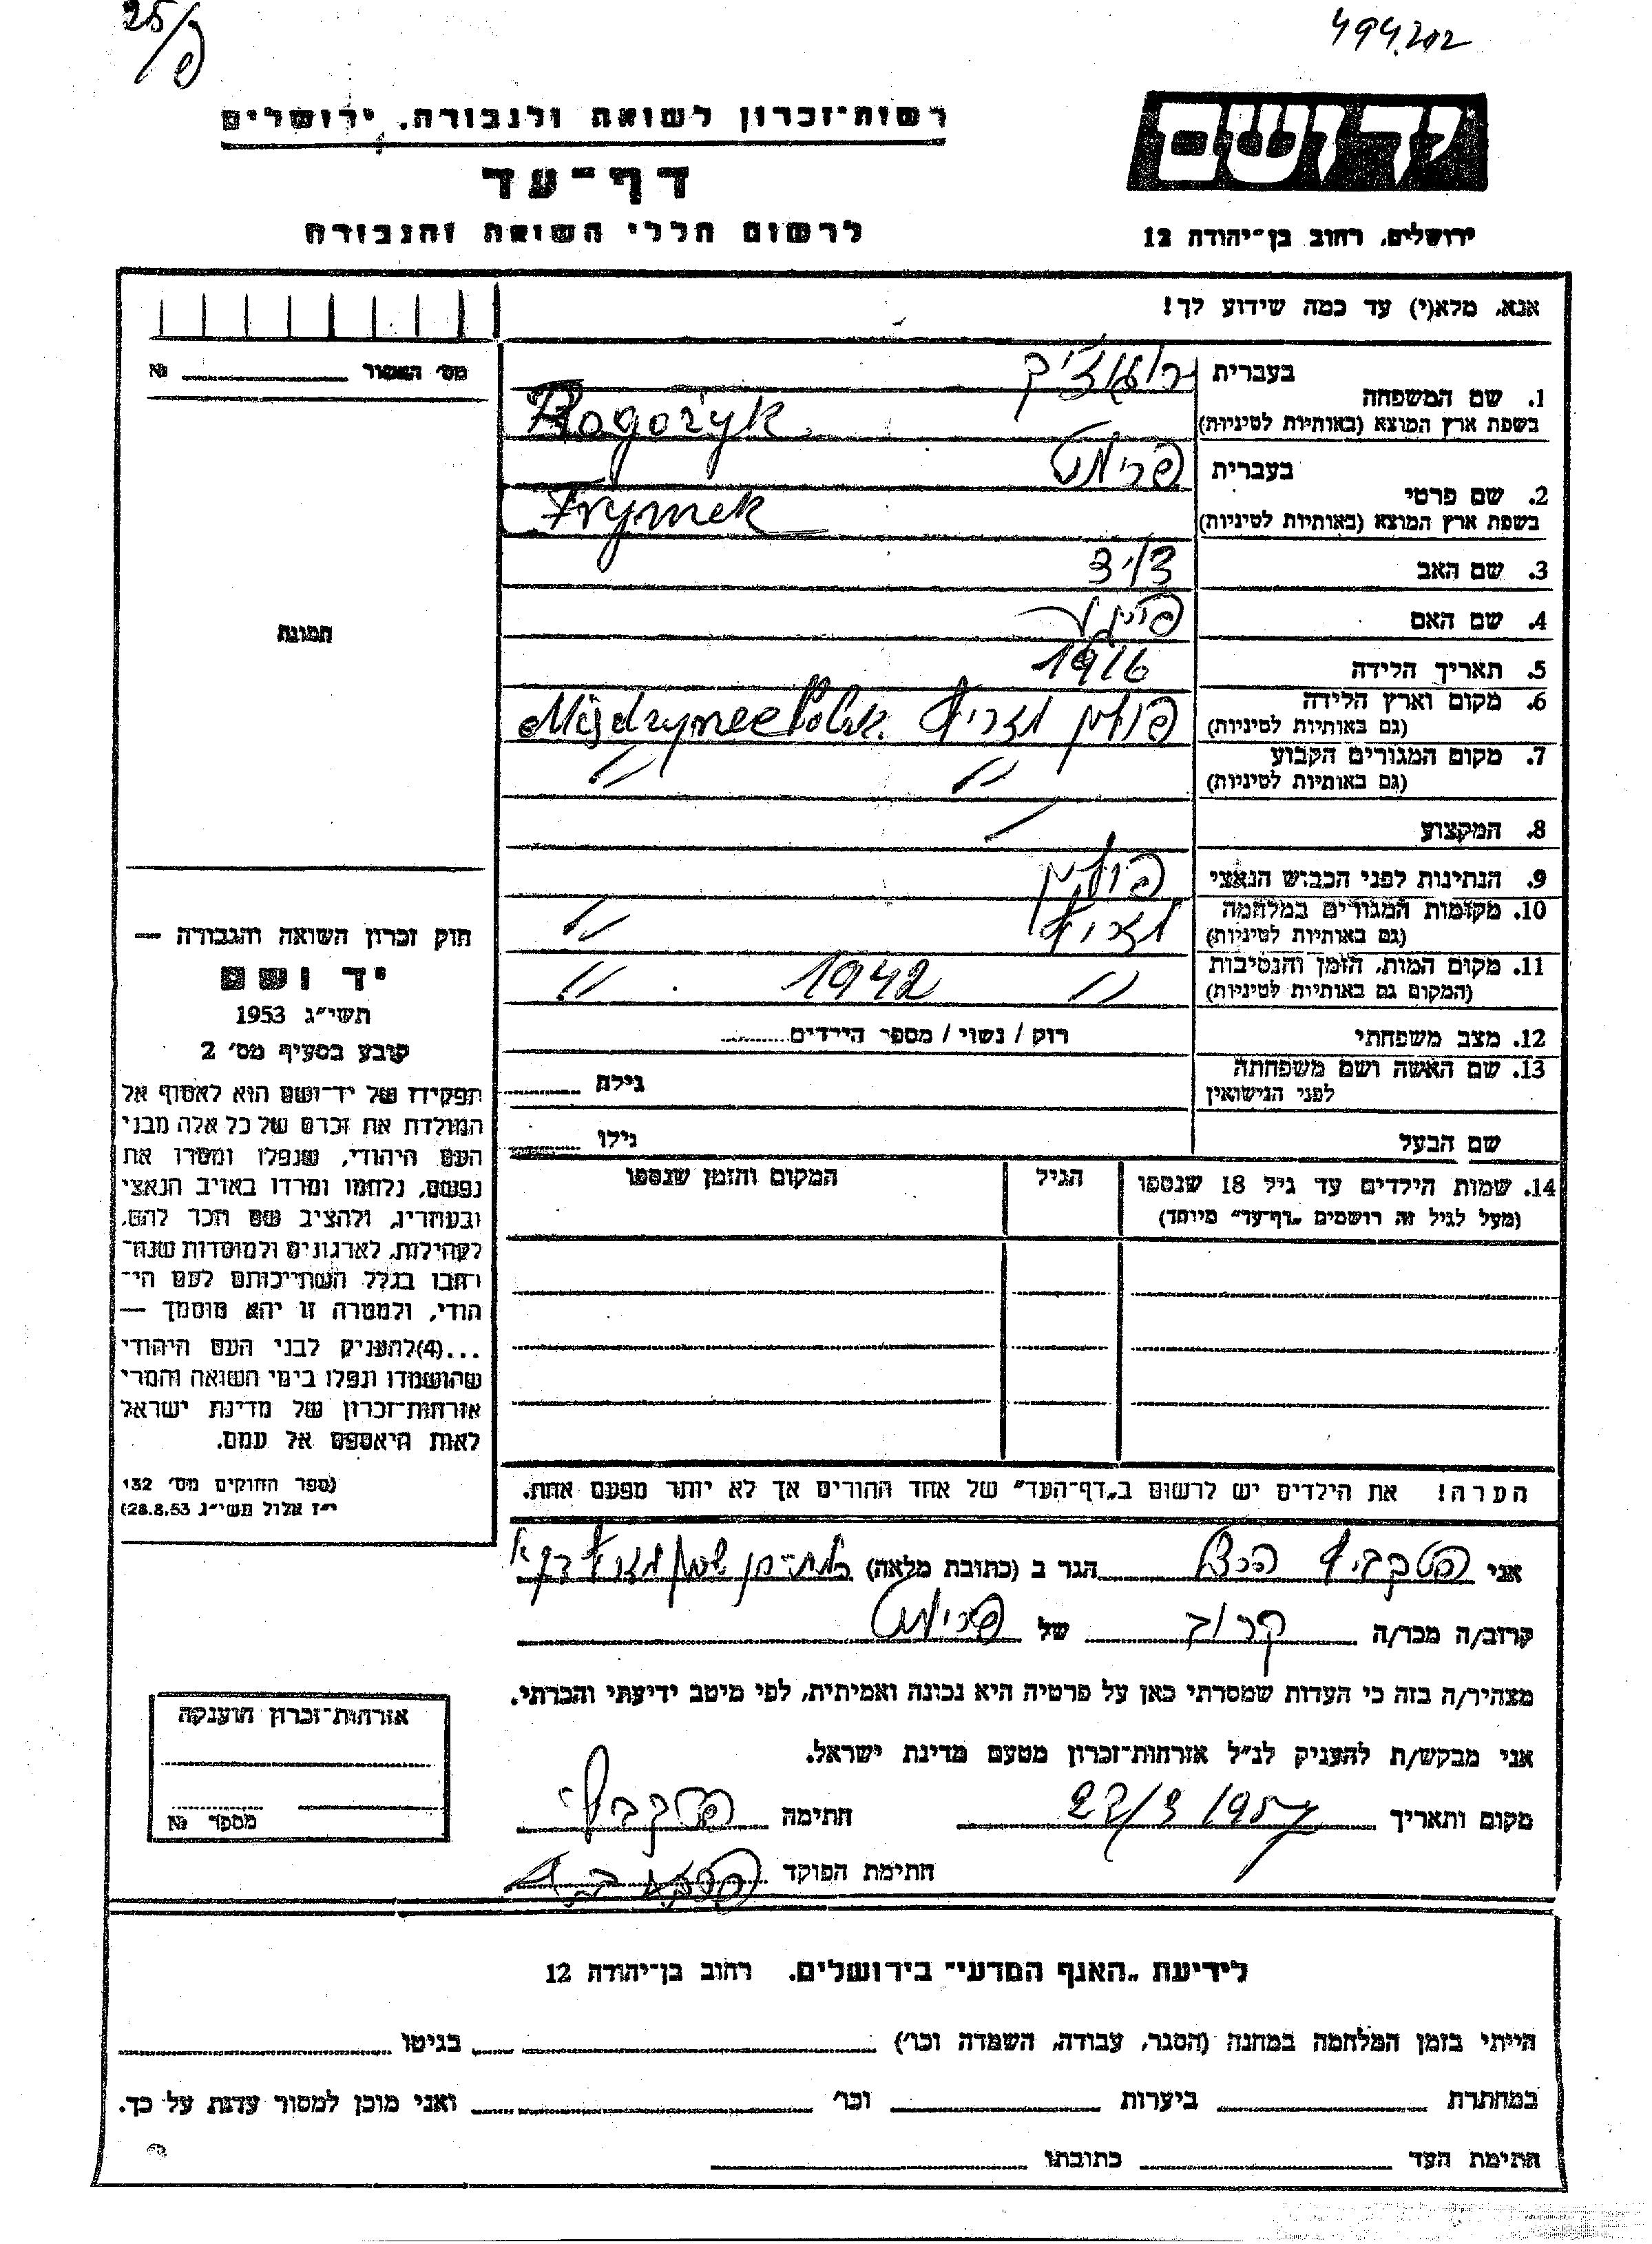 25/פ
494202
יד ושם
רשות־זכרון לשואה ולגבורה, ירושלים
דף־עד
לרשום חללי השואה והגבורה
ירושלים, רחוב בן־יהודה 12
אנא, מלא(י) עד כמה שידוע לך!
מס' האשור № ______
1. שם המשפחה
בעברית
בשפת ארץ המוצא (באותיות לטיניות) Rogożyk
2. שם פרטי
בעברית
בשפת ארץ המוצא (באותיות לטיניות) Frymek
3. שם האב דויד
4. שם האם
5. תאריך הלידה 1916
6. מקום וארץ הלידה
(גם באותיות לטיניות) פולין
7. מקום המגורים הקבוע
(גם באותיות לטיניות) // //
8. המקצוע —
9. הנתינות לפני הכבוש הנאצי פולין
10. מקומות המגורים במלחמה
(גם באותיות לטיניות) //
11. מקום המות, הזמן והנסיבות
(המקום גם באותיות לטיניות) // 1942 //
12. מצב משפחתי רוק / נשוי / מספר הילדים
13. שם האשה ושם משפחתה
לפני הנישואין גילה
שם הבעל גילו
14. שמות הילדים עד גיל 18 שנספו
(מעל לגיל זה רושמים "דף־עד" מיוחד)
הגיל
המקום והזמן שנספו
הערה! את הילדים יש לרשום ב"דף־העד" של אחד ההורים אך לא יותר מפעם אחת.
תמונה
חוק זכרון השואה והגבורה —
יד ושם
תשי"ג 1953
קובע בסעיף מס' 2
תפקידו של יד־ושם הוא לאסוף אל
המולדת את זכרם של כל אלה מבני
העם היהודי, שנפלו ומסרו את
נפשם, נלחמו ומרדו באויב הנאצי
ובעוזריו, ולהציב שם וזכר להם,
לקהילות, לארגונים ולמוסדות שנח־
רבו בגלל השתייכותם לעם הי־
הודי, ולמטרה זו יהא מוסמך —
...(4) להעניק לבני העם היהודי
שהושמדו ונפלו בימי השואה והמרי
אזרחות־זכרון של מדינת ישראל
לאות היאספם אל עמם.
(ספר החוקים מס' 132
י"ז אלול תשי"ג 28.8.53)
אני
הגר ב (כתובת מלאה)
קרוב/ה מכר/ה קרוב של
מצהיר/ה בזה כי העדות שמסרתי כאן על פרטיה היא נכונה ואמיתית, לפי מיטב ידיעתי והכרתי.
אני מבקש/ת להעניק לנ"ל אזרחות־זכרון מטעם מדינת ישראל.
מקום ותאריך 22/3 1957 חתימה
חתימת הפוקד
אזרחות־זכרון הוענקה
מספר №
לידיעת "האגף המדעי" בירושלים. רחוב בן־יהודה 12
הייתי בזמן המלחמה במחנה (הסגר, עבודה, השמדה וכו') בגיטו
במחתרת ביערות וכו' ואני מוכן למסור עדות על כך.
חתימת העד כתובתו